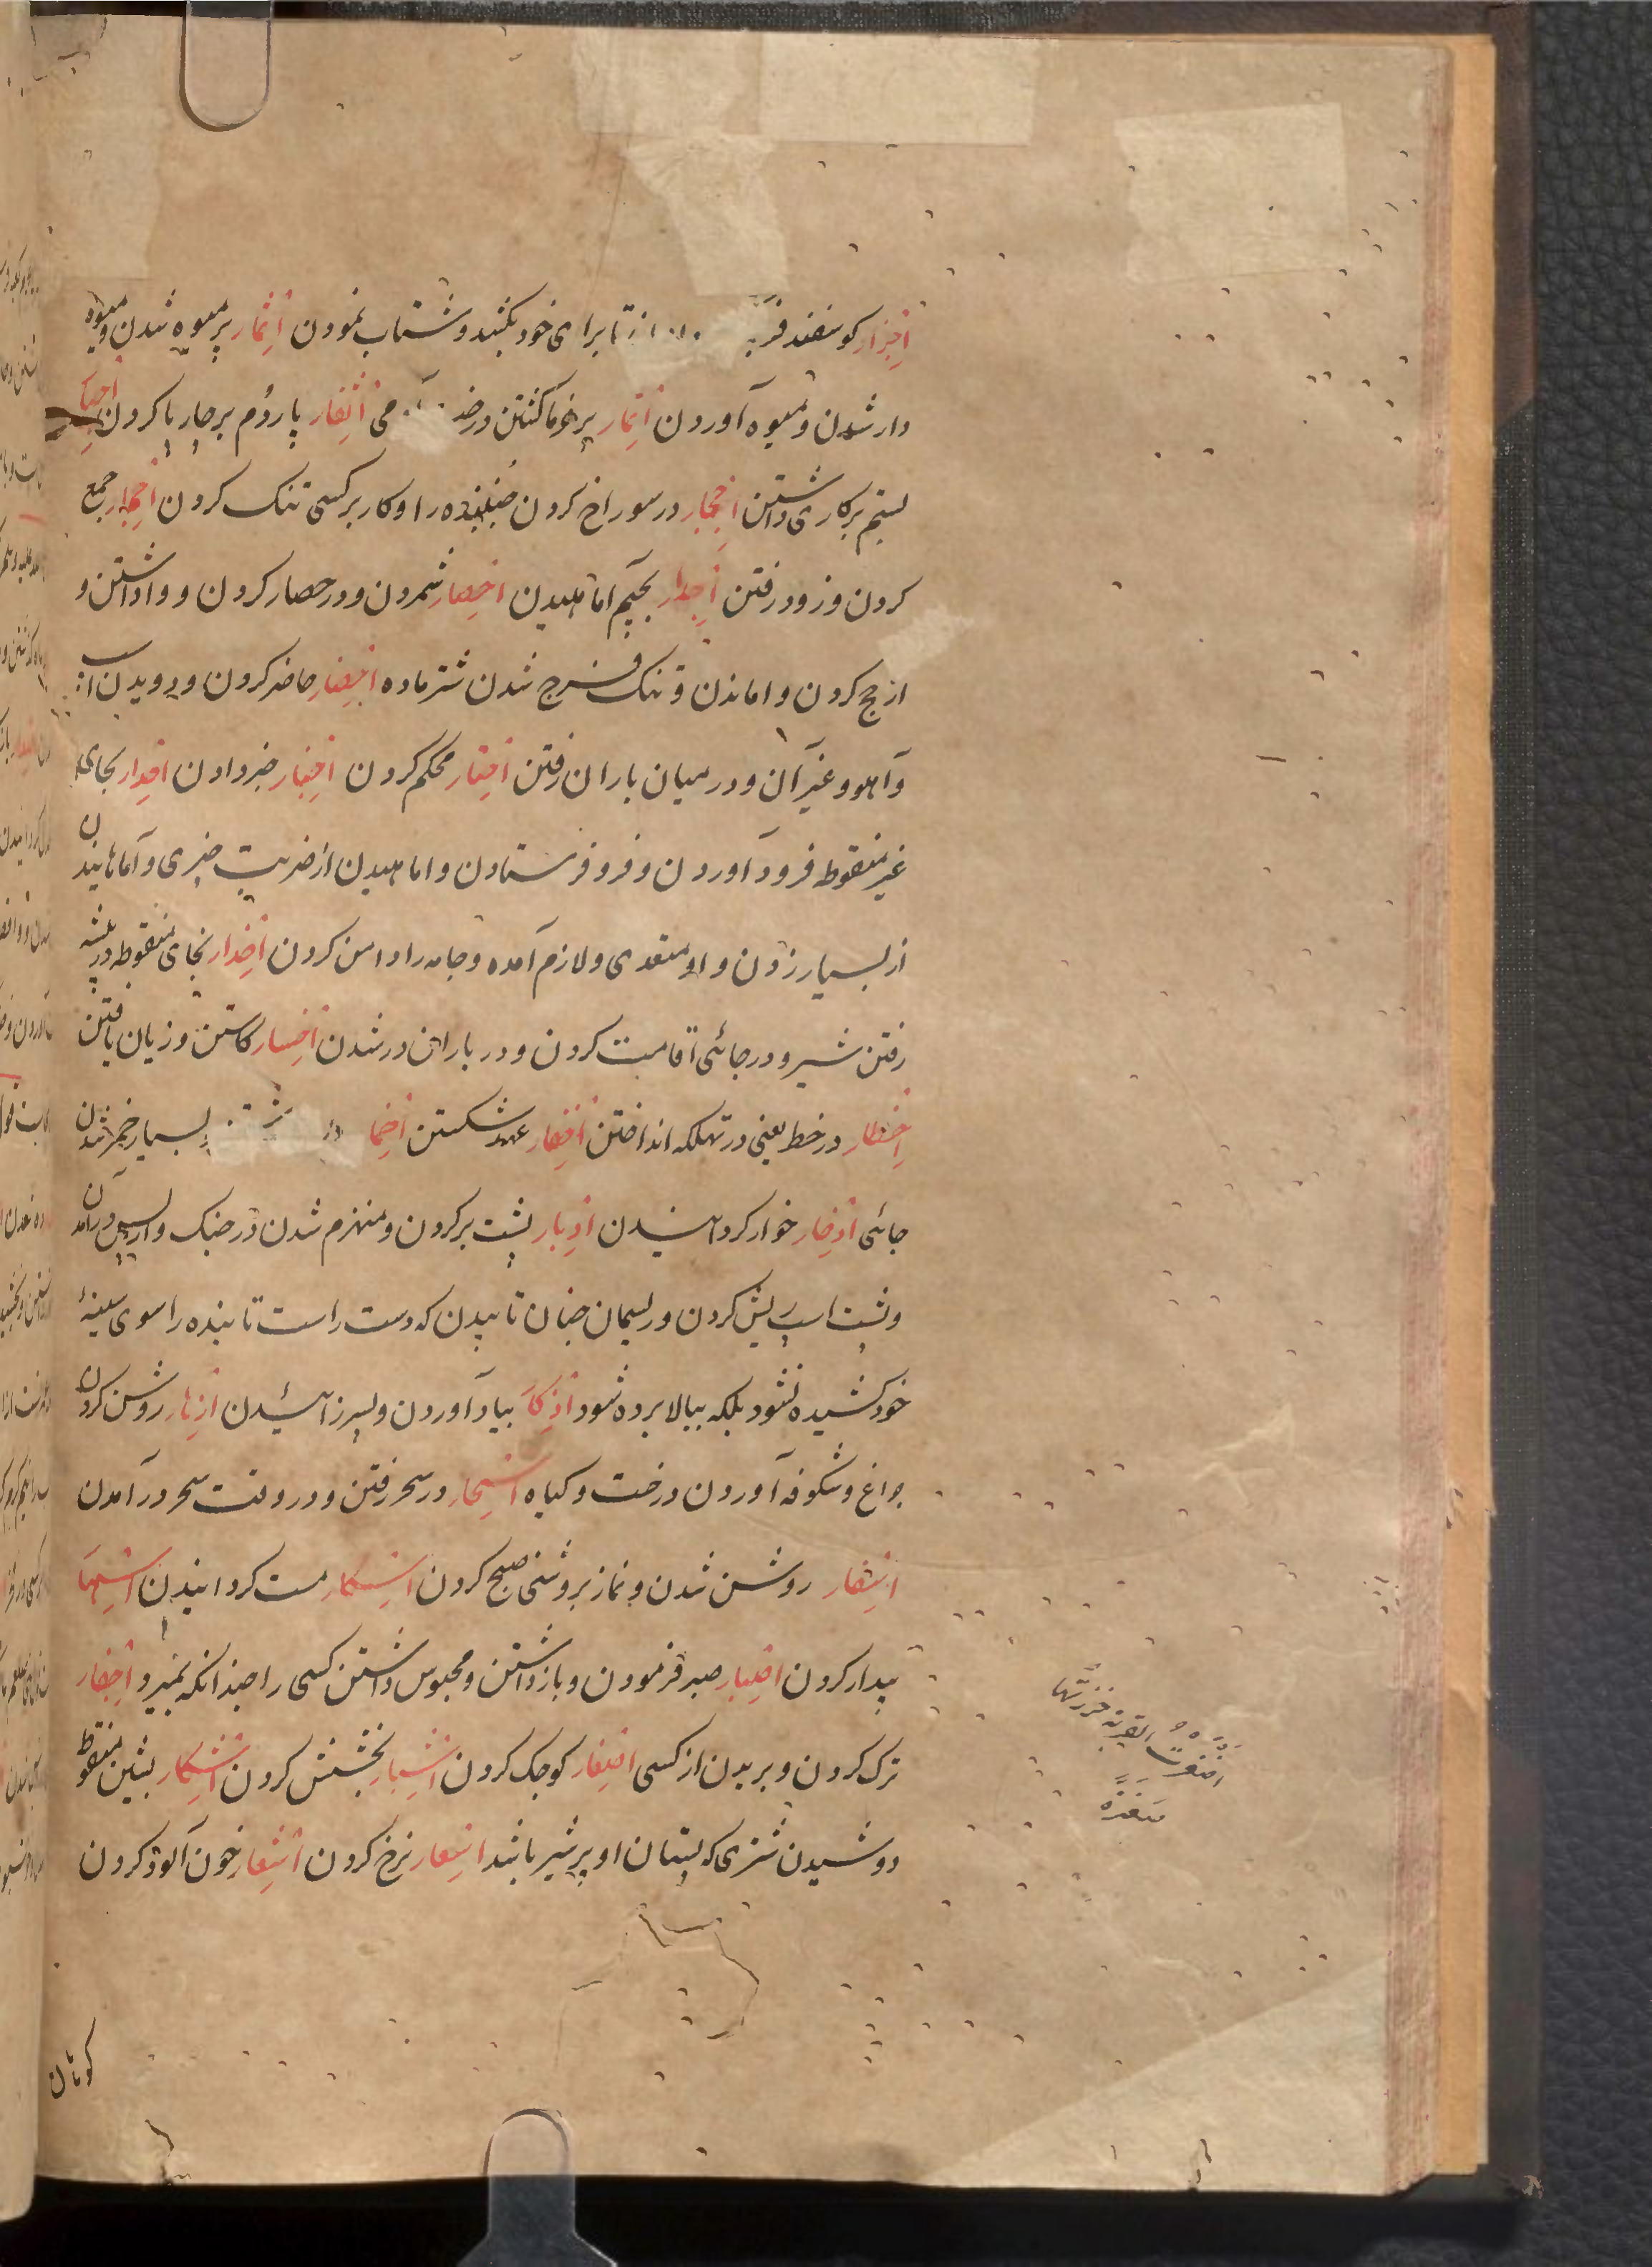 اجزار کوسفند فربه تا برای خود بکشد و شتاب نمودن اثمار پرمیوه شدن و میوه
دار شدن و میوه آوردن اتمار پرخرما کشتن درخت اثفار پاردُم برچارپا کردن اجبار
بستم بر کاری داشتن اجحار در سوراخ کردن جنبنده را و کار بر کسی تنک کردن اجمار جمع
کردن و زود رفتن اجدار بجیم اماهیدن احصار شمردن و در حصار کردن و واداشتن و
از حج کردن و اماندن و تنک فرج شدن شتر ماده احضار حاضر کردن و دویدن اسب
و آهو و غیر آن و در میان باران رفتن احتار محکم کردن اخبار خبر دادن احدار بحای
غیر منقوط فرود آوردن و فرو فرستادن و اماهیدن از ضربت چیزی و آماهانیدن
از بسیار زدن و او متعدی و لازم آمده و جامه را دامن کردن اخدار بخای منقوطه در بیشه
رفتن شیر و در جائی اقامت کردن و در باران در شدن اخسار کاستن و زیان یافتن
اخطار در خطر یعنی در تهلکه انداختن اخفار عهد شکستن اخما بسیار خمر شدن
جائی ادخار خوار کردانیدن ادبار پشت بر کردن و منهزم شدن در جنک و از پس درآمدن
و پشت اسپ ریش کردن و ریسمان چنان تابیدن که دست راست تابنده را سوی سینۀ
خود کشیده نشود بلکه ببالا برده شود اذکار بیاد آوردن و پسر زائیدن ازهار روشن کردن
چراغ و شکوفه آوردن درخت و کیاه اسحار در سحر رفتن و در وقت سحر در آمدن
اسفار روشن شدن و نماز بروشنی صبح کردن اسکار مست کردانیدن اسهار
بیدار کردن اصبار صبر فرمودن و بازداشتن و محبوس داشتن کسی را چندانکه بمیرد اجفار
ترک کردن و بریدن از کسی اصغار کوچک کردن اشبار بخشش کردن اشکار بشین منقوط
دوشیدن شتری که پستان او پر شیر باشد اسعار نرخ کردن اشعار خون آلود کردن
اصغرت القربة خرزتها
صغیرة
کوهان